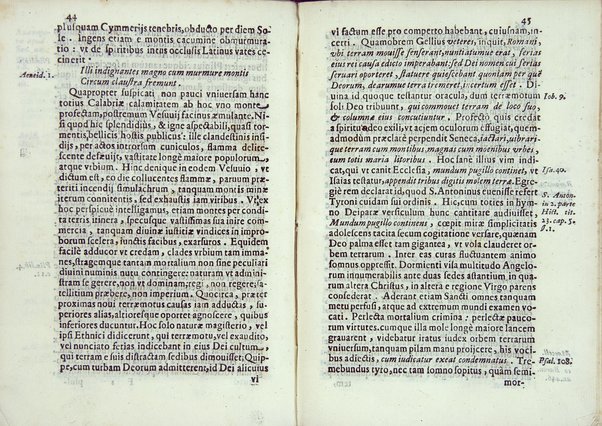 44
plusquam Cymmerijs tenebris, obducto per diem So-
le. Ingens etiam e montis cacumine obmurmura-
tio: vt de spiritibus intus occlusis Latinus vates ce-
cinerit
Aeneid. 1.
Illi indignantes magno cum murmure montis
Circum claustra fremunt.
Quapropter suspicati non pauci vniuersam hanc
totius Calabriæ calamitatem ab hoc vno monte
profectam, postremum Vesuuij facinus æmulante. Ni-
si quod hic splendidius, & igne aspectabili, quasi tor-
mentis, bellicis hostis publicus: ille clandestinis insi-
dijs, per actos introrsum cuniculos, flamma delite-
scente defæuijt, vastitate longè maiore populorum,
atque vrbium. Hinc denique in eodem Vesuuio, vt
dictum est, eo die collucentes flammæ, parum præ-
teriti incendij simulachrum, tanquam montis mina
iterum connitentis, sed exhausta iam viribus. Vt ex
hoc perspicuè intelligas, etiam montes per condi-
ta terris itinera, spatiisque vastissimas sua inire com-
mercia, tanquam diuinæ iustitiæ vindices in improb-
orum scelera, iunctis facibus, exarsuros. Equidem
facilè adducor vt credam, clades vrbium tam imma-
nes, stragemque tantam mortalium non sine peculiari
diuini numinis nutu contingere: naturam vt admini-
stram se gerere, non vt dominam; regi, non regere; sa-
tellitium præbere, non imperium. Quocirca, præter
proximas noui terræmotus causas iam adductas, su-
periores alias, altioresque oportet agnoscere, quibus
inferiores ducuntur. Hoc solo naturæ magisterio, vel
ipsi Ethnici didicerunt, qui terræmotu, vel exaudito,
vel nunciato ferias indicebant in eius Dei cultum,
qui terram e suis distractam sedibus dimouisset. Quip-
pe, cum turbam Deorum admitterent, id Dei alicuius
vi
45
vi factum esse pro comperto habebant, cuiusnam, in-
certi. Quamobrem Gellius veteres, inquit, Romani,
vbi terram mouisse senserant, nuntiatumue erat, ferias
eius rei causa edicto imperabant: sed Dei nomen cui ferias
seruari oporteret, statuere quiescebant quoniam per quē
Deorum, dearumue terra tremeret, incertum esset. Di-
uina id quoque testantur oracula, dum terræmotum
soli Deo tribuunt, qui commouet terram de loco suo,
Iob. 9.
& columnæ eius concutiuntur. Profectò quis credat
a spiritu adeo exili, vt aciem oculorum effugiat, quem-
admodùm præclarè perpendit Seneca, iactari, vibrari-
que terram cum montibus, magnas cum moenibus vrbes,
cum totis maria litoribus. Hoc sanè illius vim indi-
cat, qui vt canit Ecclesia, mundum pugillo continet, vt
Isa. 40.
Isaias testatur, appendit tribus digitis molem terræ. Egre-
giè rem declarat id, quod S. Antoninus euenisse refert
S. Anton-
in 2. parte
Hist. tit.
23. cap. 5.
§. 1.
Tyroni cuidam sui ordinis. Hic, cum toties in hymno
Deiparæ versiculum hunc cantitare audiuisset,
Mundum pugillo continens, coepit miræ simplicitatis
adolescens tacita secum cogitatione versare, quænam
Deo palma esset tam gigantea, vt vola clauderet or-
bem terrarum. Inter eas curas fluctuantem animo
somnus oppressit. Dormienti visa multitudo Angelo-
rum innumerabilis ante duas sedes assistantium in qua-
rum altera Christus, in altera e regione Virgo parens
consederat. Aderant etiam Sancti omnes tanquam
metu perculsi, atque ad extremum mundi examen vo-
cati. Perlecta mortalium crimina: perlectæ pauco-
rum virtutes. cumque illa mole longè maiore lancem
grauarent, videbatur iratus iudex orbem terrarum
vniuersum, tanquam pilam manu projicere, his voci-
bus adiectis, cum iudicatur exeat condemnatus. Tre-
Psal. 108.
mebundus tyro, nec tam somno sopitus, quàm semi-
mor-